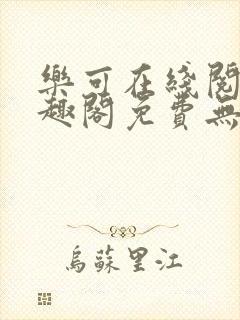 樂可在綫閱
趣閣免費無
烏蘇里江